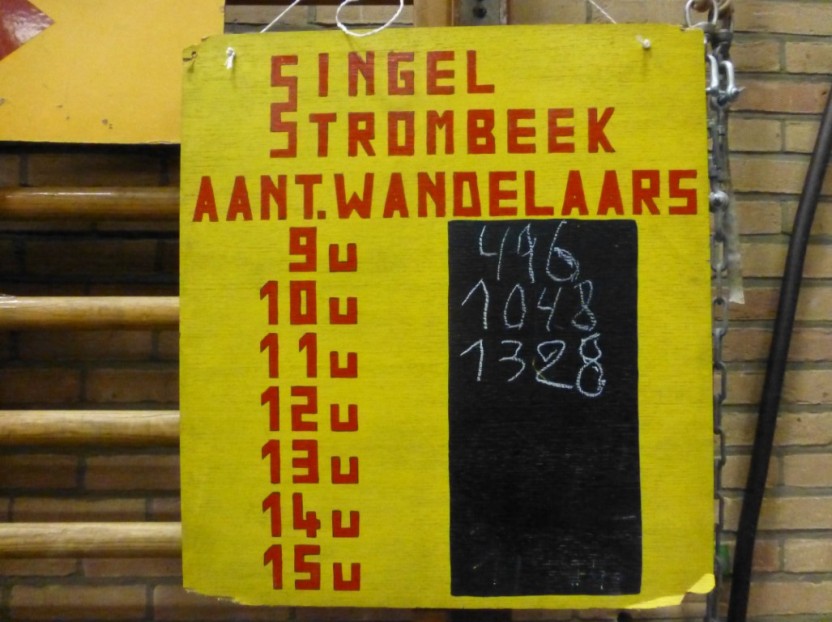 SINGEL
STROMBEEK
AANT. WANDELAARS
9u 496
10u 1048
11u 1328
12u
13u
14u
15u